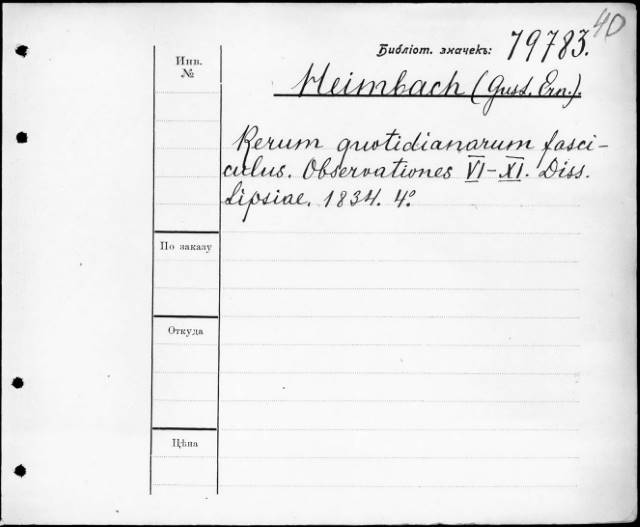 40
Библіот. значекъ: 79783.
Инв.
№
Heimbach (Gust. Ern.).
Rerum quotidianarum fasci-
culus. Observationes VI-XI. Diss.
Lipsiae. 1834. 4°
По заказу
Откуда
Цѣна